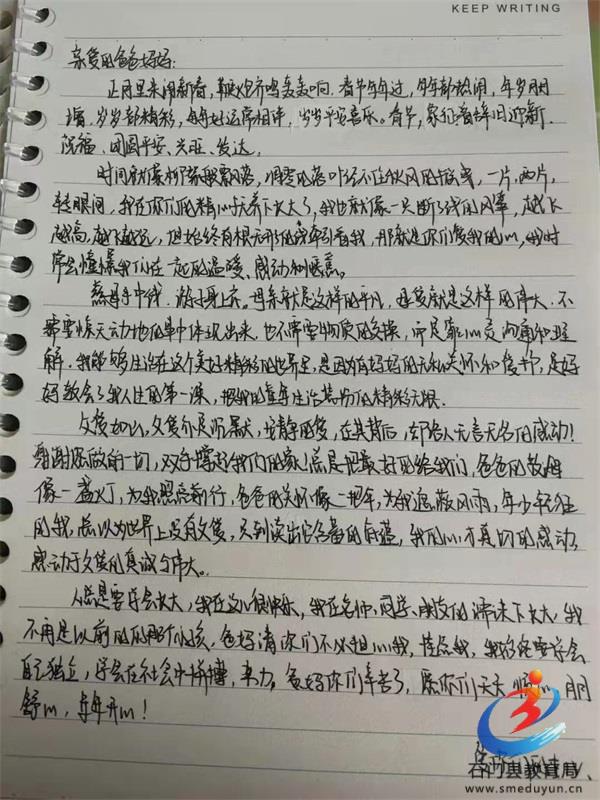 KEEP WRITING
亲爱的爸爸妈妈:
正月里来闹新春,鞭炮齐鸣轰轰响。春节年年过,年年都热闹,年岁月月
增,岁岁都精彩,每每好运常相伴,岁岁平安喜乐。春节,象征着辞旧迎新
祝福、团圆平安、兴旺、发达。
时间就像那飘落,凋零的落叶经不住秋风的,一片,两片,
转眼间,我在你们的精心抚养下长大了,我也就像一只断了线的风筝,越飞
越高,越飞越远,但始终有根无形的线牵引着我,那就是你们爱我的心,我时
常会憧憬我们在一起的温暖、感动和
慈母手中线,游子身上衣。母亲就是这样的平凡,母爱就是这样的伟大,不
需要惊天动地的事中体现出来,也不需要物质的交换,而是靠心灵沟通和理
解。我能够生活在这个美好精彩的世界里,是因为有妈妈的无私关怀和爱护,是妈
妈教会了我人生的第一课,把我的童年生活装扮的精彩无限。
父爱如山,父爱亦是沉默,安静的爱,在其背后,却给人无言无名的感动!
谢谢您做的一切,双手撑起我们的家,总是把最好的给我们,爸爸的教诲
像一盏灯,为我照亮前行,爸爸的关怀像一把伞,为我遮蔽风雨,年少轻狂
的我,总以为世界上没有父爱,只到读出它含蓄的,我的心才真切的感动,
感动于父爱的真诚与伟大。
人总是要学会长大,我在这儿很快乐,我在老师、同学、朋友的中长大,我
不再是以前的那个小孩,爸妈请你们不必担心我,挂念我,我终究要学会
自己独立,学会在社会中拼搏,努力。爸妈你们辛苦了,愿你们天天顺心,月月
舒心,年年开心!
石门县教育局
www.smeduyun.cn